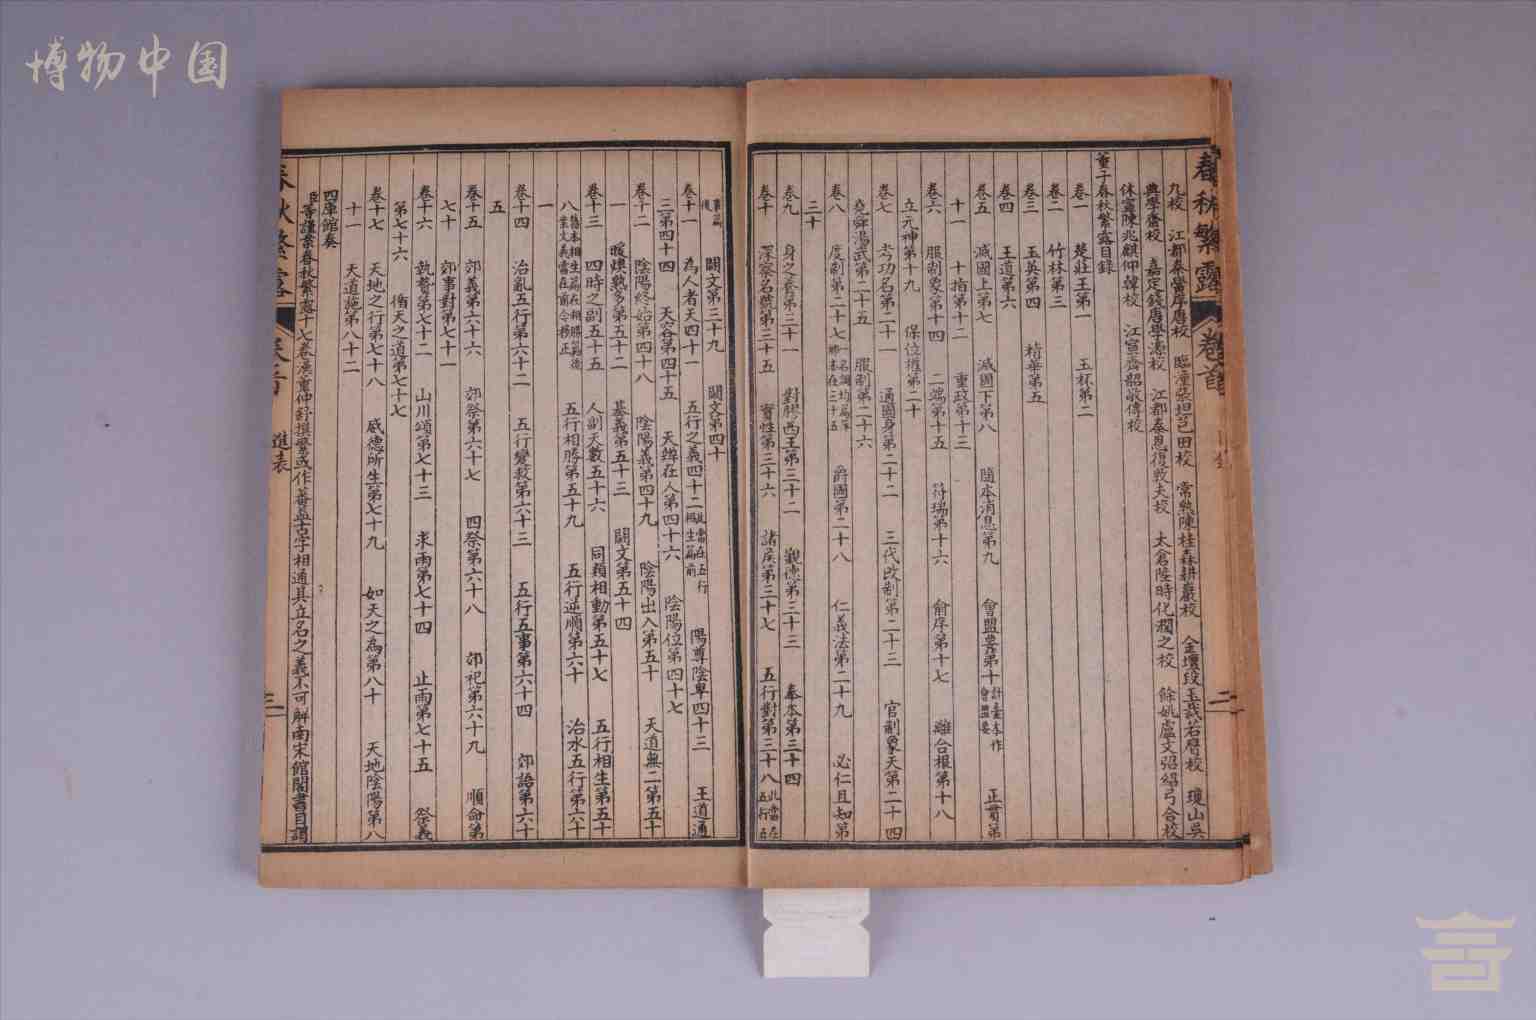 博物中国
春秋繁露 卷首 目錄 二
九校 江都秦黌序唐校 臨潼張坦芑田校 常熟陳桂森耕巖校 金壇段玉裁若膺校 瓊山吳
典學齋校 嘉定錢唐學淵校 江都秦恩復敦夫校 太倉陸時化潤之校 餘姚盧文弨紹弓合校
休寧陳兆麒仰韓校 江寧齊韶敬傳校
董子春秋繁露目錄
卷一 楚莊王第一 玉杯第二
卷二 竹林第三
卷三 玉英第四 精華第五
卷四 王道第六
卷五 滅國上第七 滅國下第八 隨本消息第九 會盟要第十 計臺本作會盟要 正貫第
十一 十指第十二 重政第十三
卷六 服制象第十四 二端第十五 符瑞第十六 俞序第十七 離合根第十八
立元神第十九 保位權第二十
卷七 考功名第二十一 通國身第二十二 三代改制第二十三 官制象天第二十四
堯舜湯武第二十五 服制第二十六
卷八 度制第二十七 爵國第二十八 仁義法第二十九 必仁且知第
三十
卷九 身之養第三十一 對膠西王第三十二 觀德第三十三 奉本第三十四
卷十 深察名號第三十五 實性第三十六 諸侯第三十七 五行對第三十八 此當在五行五
事篇後 闕文第三十九 闕文第四十
卷十一 為人者天四十一 五行之義四十二 此當在五行相生篇前 陽尊陰卑四十三 王道通
三第四十四 天容第四十五 天辨在人第四十六 陰陽位第四十七
卷十二 陰陽終始第四十八 陰陽義第四十九 陰陽出入第五十 天道無二第五十
一 暖燠孰多第五十二 基義第五十三 闕文第五十四
卷十三 四時之副五十五 人副天數五十六 同類相動第五十七 五行相生第五十
八 舊本相生篇在相勝篇後案文義當在前今移正 五行相勝第五十九 五行逆順第六十 治水五行第六十
一
卷十四 治亂五行第六十二 五行變救第六十三 五行五事第六十四 郊語第六十
五
卷十五 郊義第六十六 郊祭第六十七 四祭第六十八 郊祀第六十九 順命第
七十 郊事對第七十一
卷十六 執贄第七十二 山川頌第七十三 求雨第七十四 止雨第七十五 祭義
第七十六 循天之道第七十七
卷十七 天地之行第七十八 威德所生第七十九 如天之為第八十 天地陰陽第八
十一 天道施第八十二
四庫館奏
臣等謹案春秋繁露十七卷漢董仲舒撰繁或作蕃蓋古字相通其立名之義不可解南宋館閣書目謂
春秋繁露 卷首 進表 三